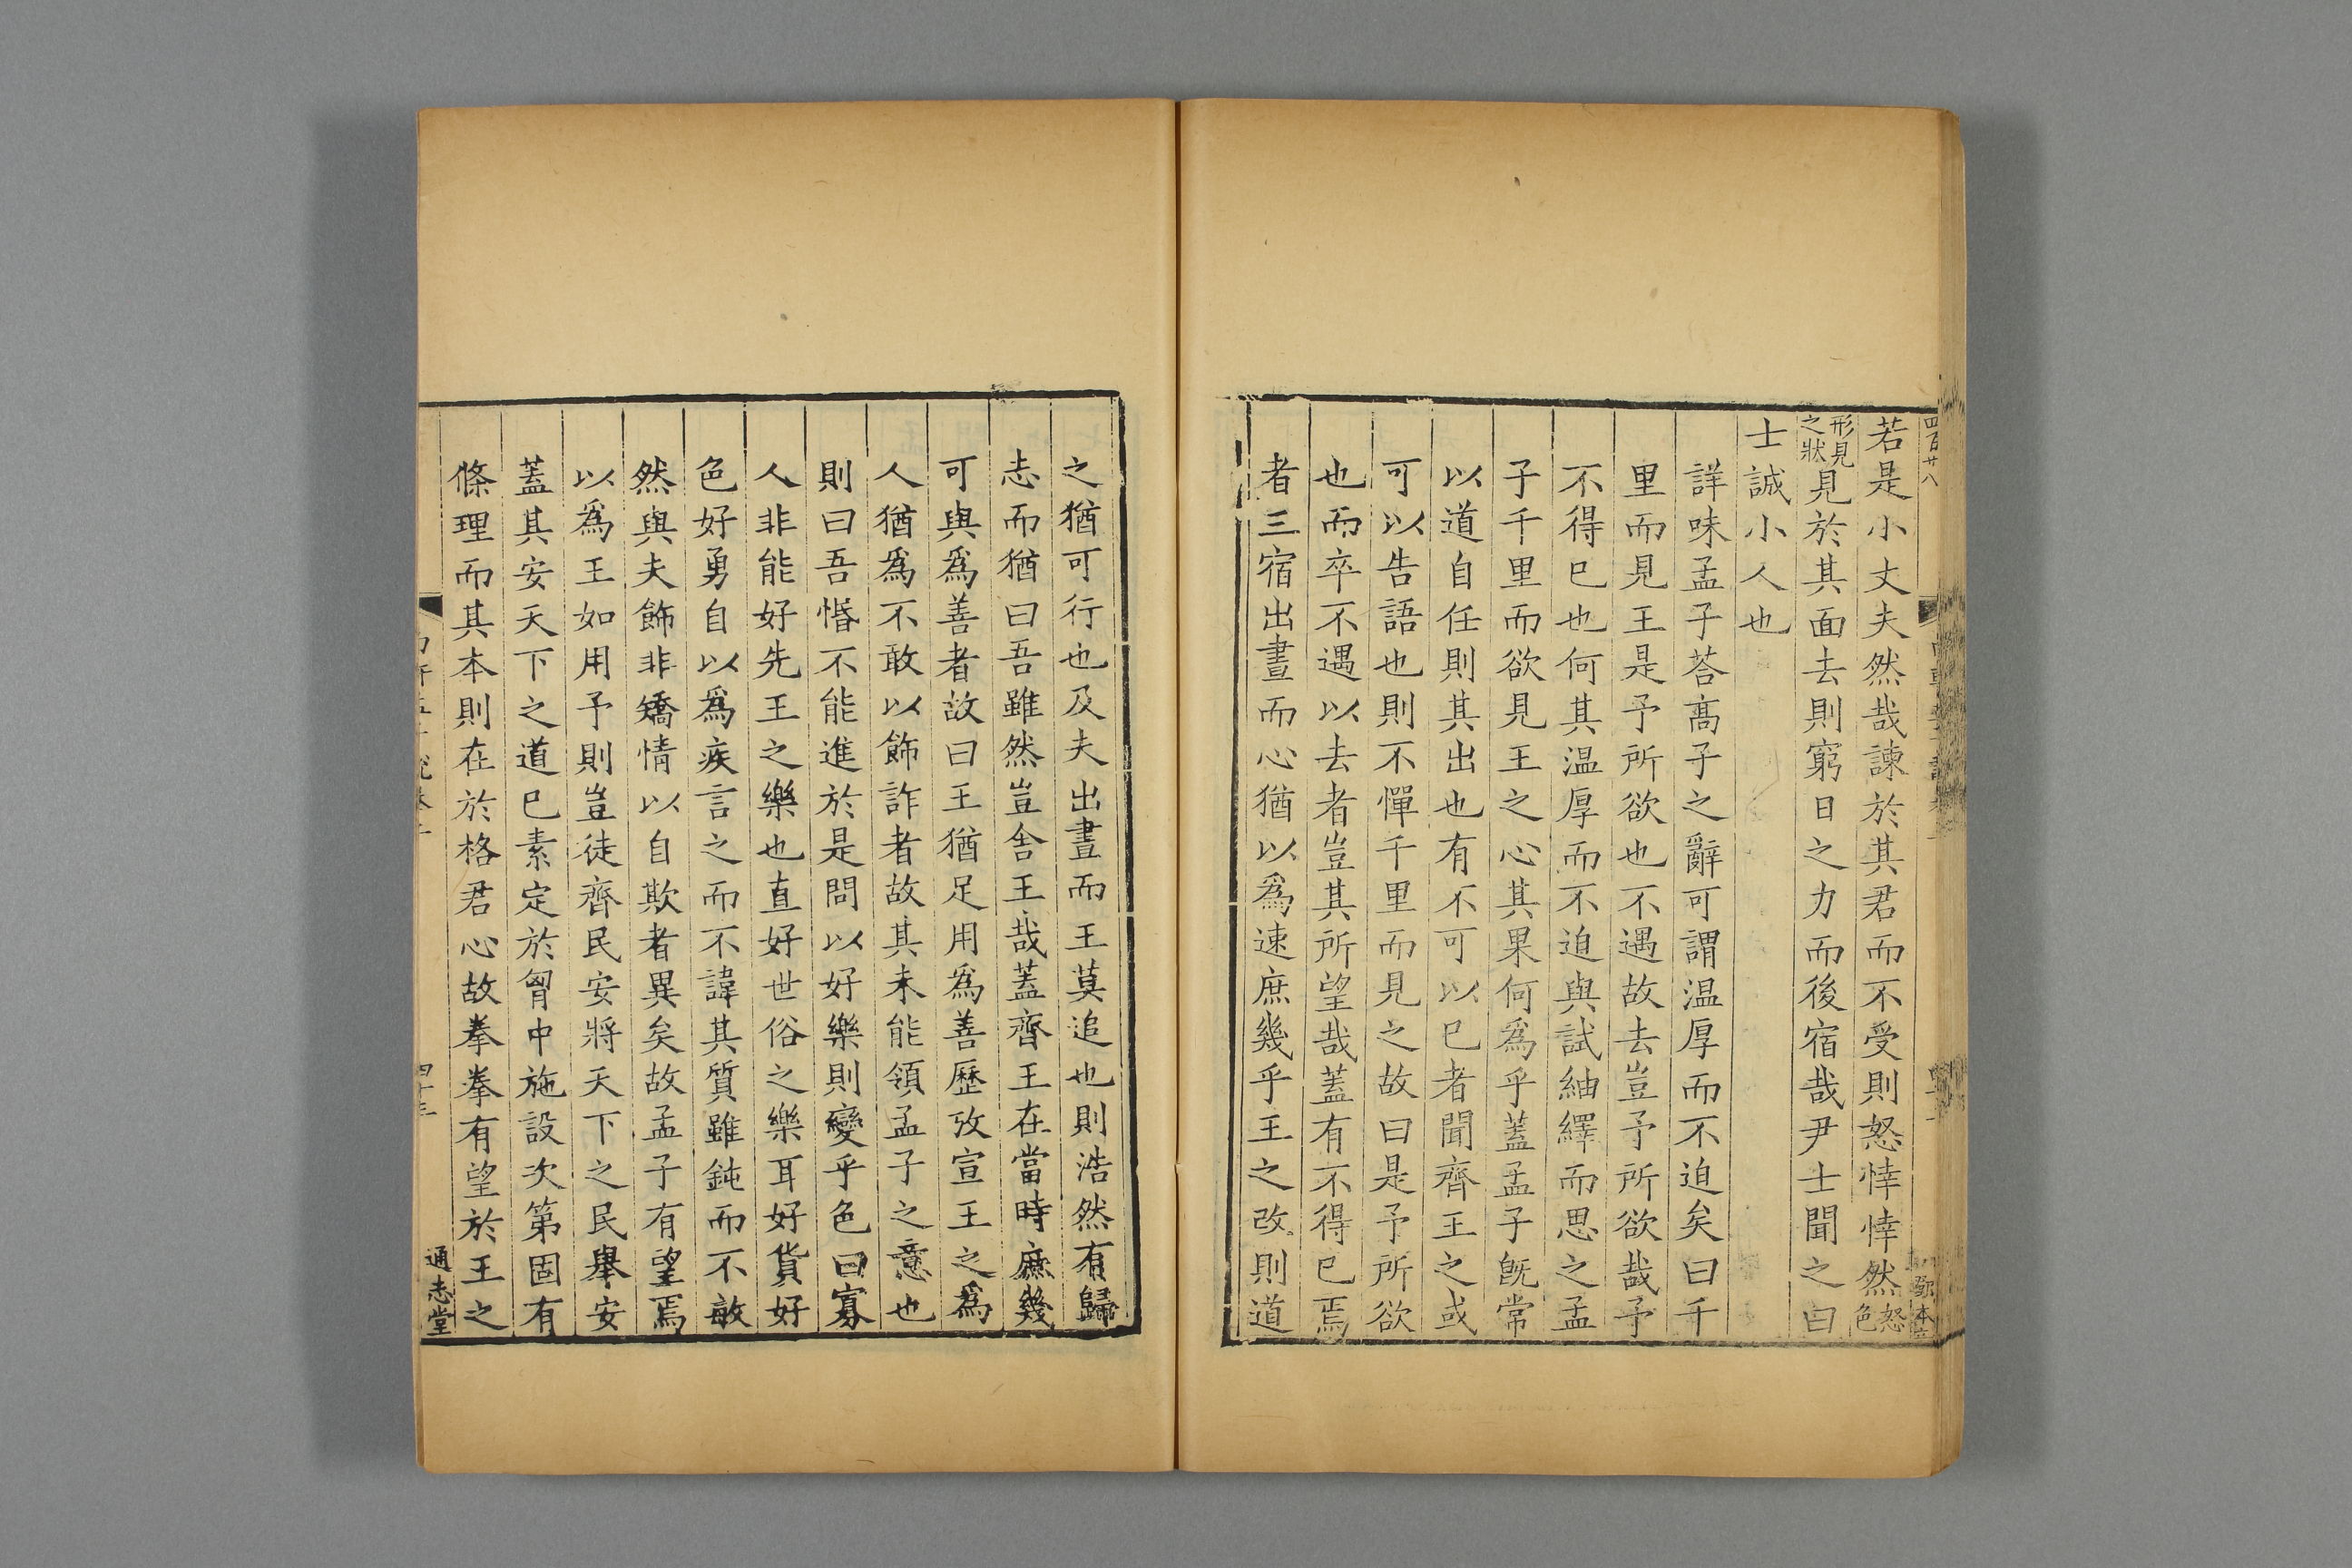 四百廿八
若是小丈夫然哉諫於其君而不受則怒悻悻然怒色
形見之狀見於其面去則窮日之力而後宿哉尹士聞之曰
士誠小人也
詳味孟子荅髙子之辭可謂温厚而不迫矣曰千
里而見王是予所欲也不遇故去豈予所欲哉予
不得已也何其温厚而不迫與試紬繹而思之孟
子千里而欲見王之心其果何爲乎蓋孟子旣常
以道自任則其出也有不可以已者聞齊王之或
可以告語也則不憚千里而見之故曰是予所欲
也而卒不遇以去者豈其所望哉蓋有不得已焉
者三宿出晝而心猶以爲速庶幾乎王之改則道
之猶可行也及夫出晝而王莫追也則浩然有歸
志而猶曰吾雖然豈舍王哉蓋齊王在當時庶幾
可與爲善者故曰王猶足用爲善歷攷宣王之爲
人猶爲不敢以飾詐者故其未能領孟子之意也
則曰吾惛不能進於是問以好樂則變乎色曰寡
人非能好先王之樂也直好世俗之樂耳好貨好
色好勇自以爲疾言之而不諱其質雖鈍而不敏
然與夫飾非矯情以自欺者異矣故孟子有望焉
以爲王如用予則豈徒齊民安將天下之民舉安
蓋其安天下之道已素定於胷中施設次第固有
條理而其本則在於格君心故拳拳有望於王之
通志堂